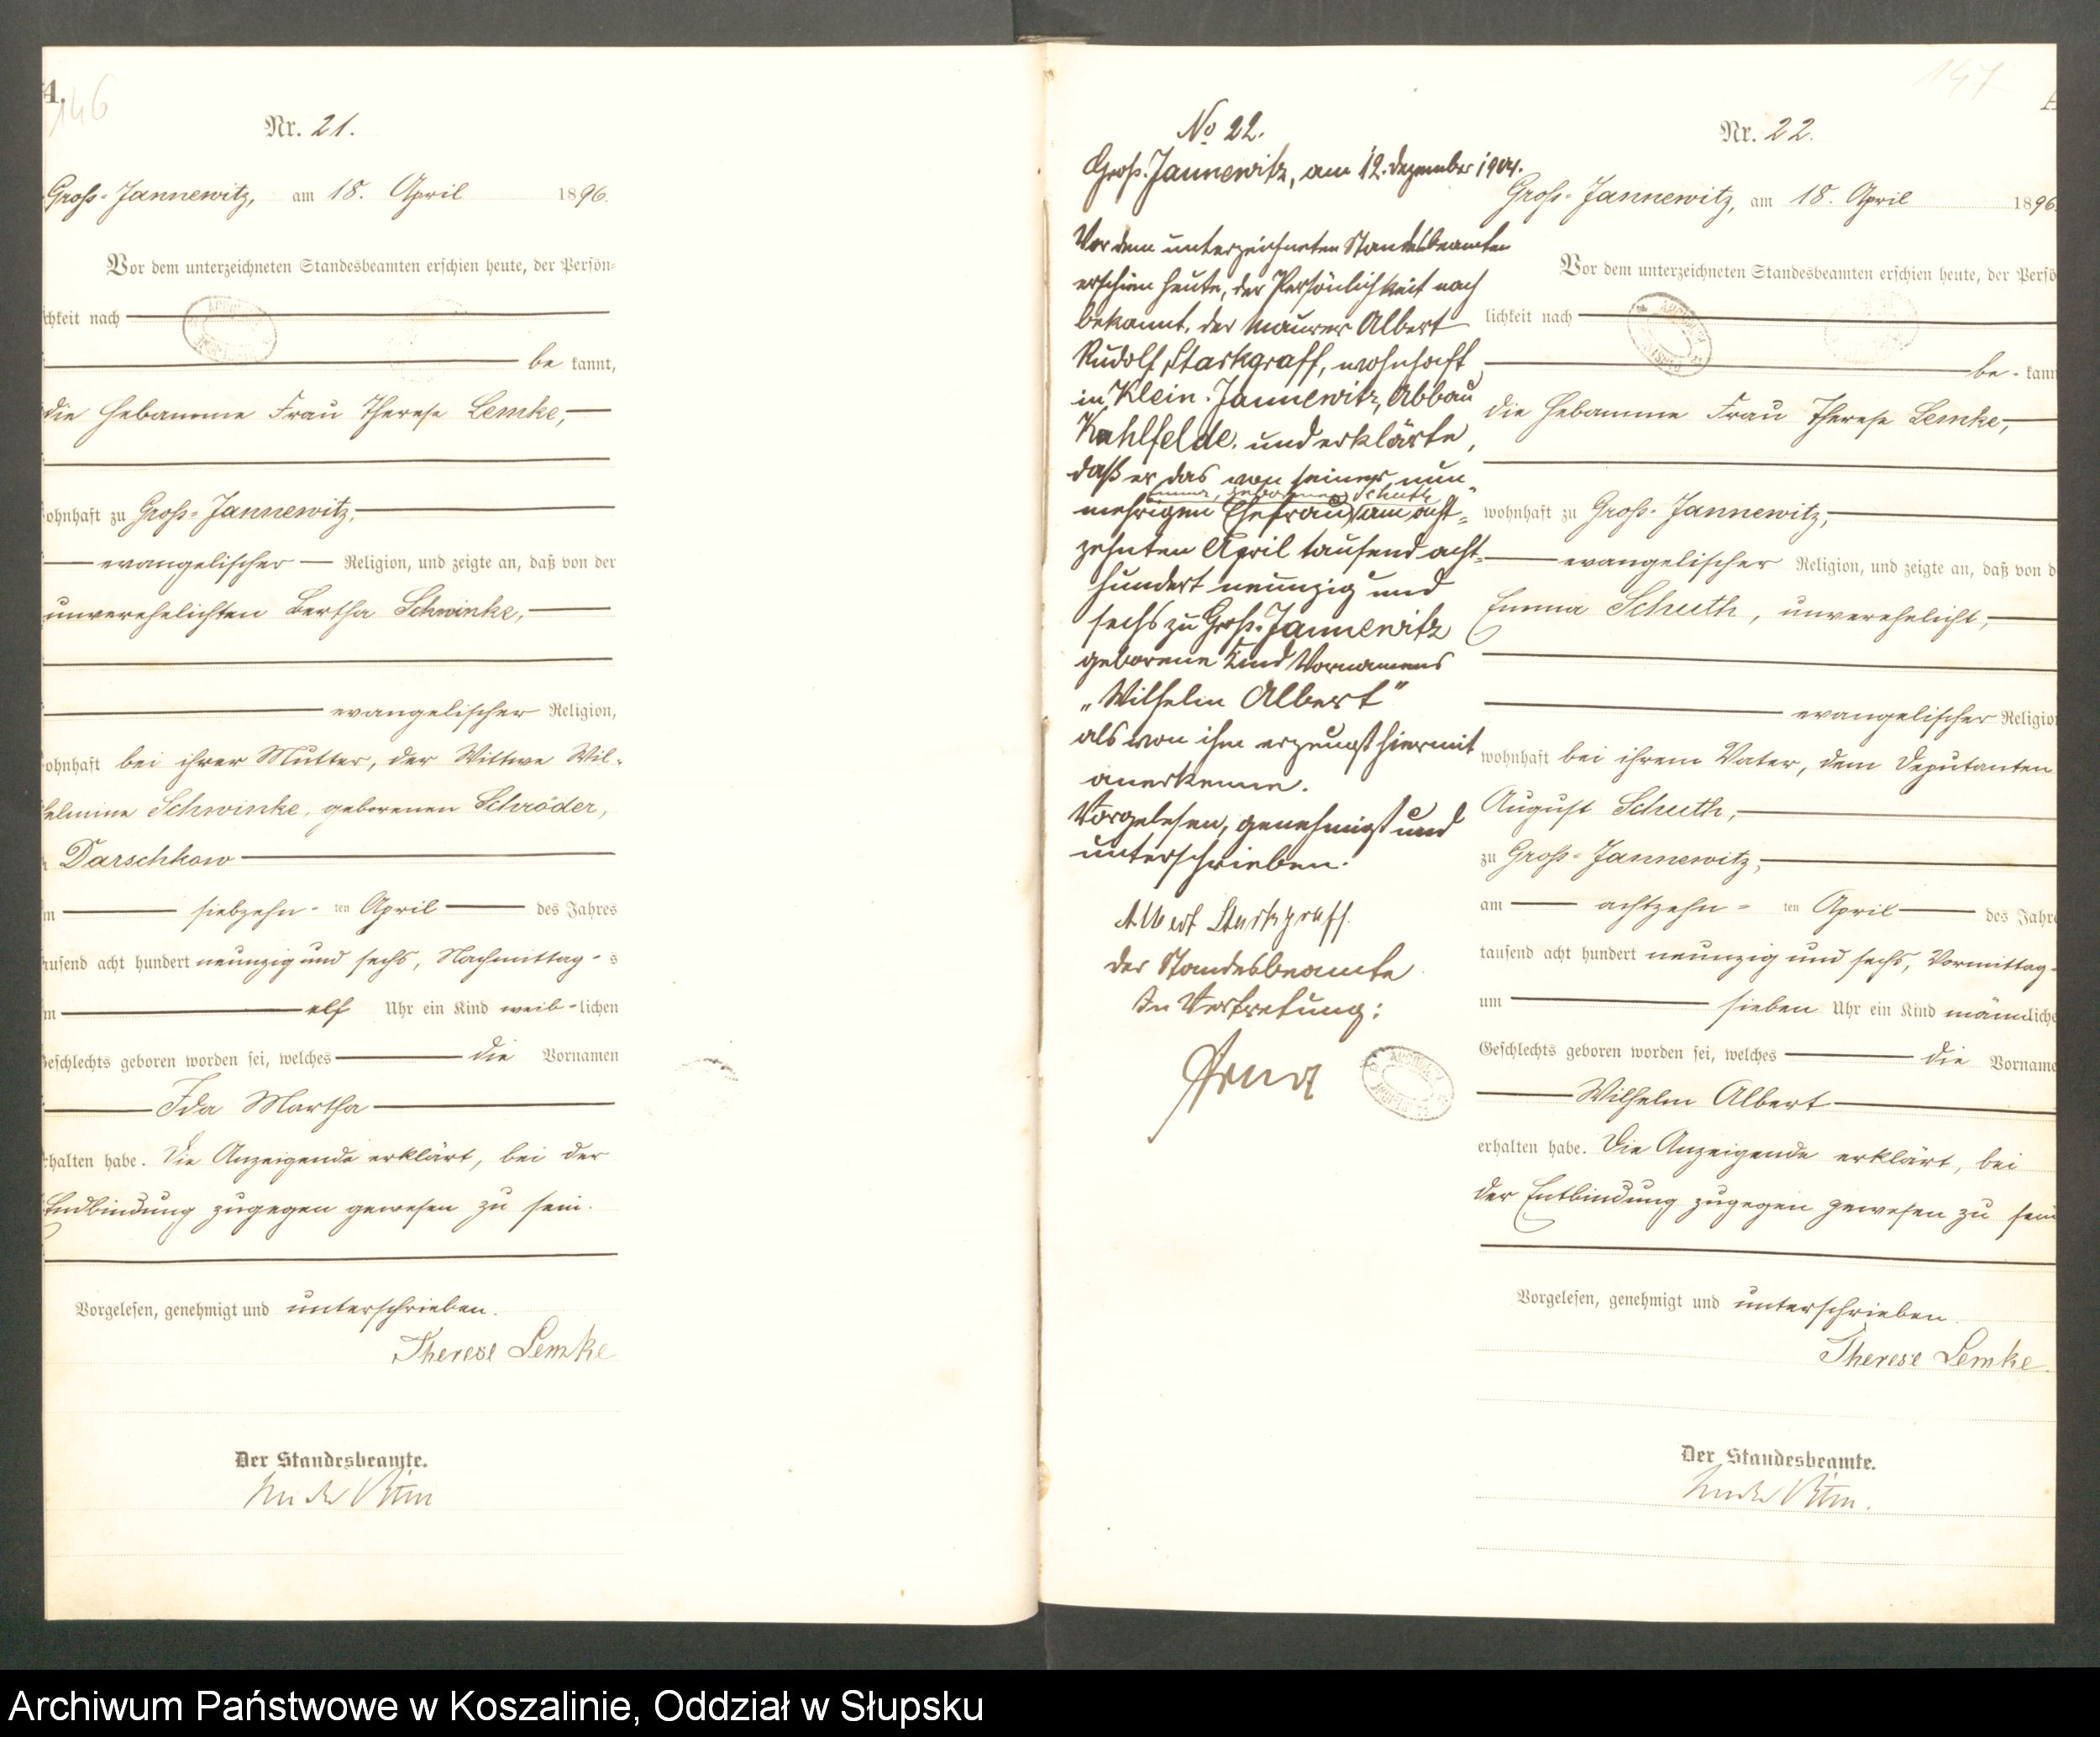 146
Nr. 21.
Groß-Jannewitz, am 18. April 1896.
Vor dem unterzeichneten Standesbeamten erschien heute, der Persön-
lichkeit nach
be kannt,
die Hebamme Frau Therese Lemke,
ohnhaft zu Groß-Jannewitz,
evangelischer Religion, und zeigte an, daß von der
unverehelichten Bertha Schwinke,
evangelischer Religion,
ohnhaft bei ihrer Mutter, der Wittwe Wil-
helmine Schwinke, geborenen Schröder,
Darschkow
siebzehn- ten April des Jahres
tausend acht hundert neunzig und sechs, Nachmittag-s
elf Uhr ein Kind weib-lichen
Geschlechts geboren worden sei, welches die Vornamen
Ida Martha
erhalten habe. Die Anzeigende erklärt, bei der
Endbindung zugegen gewesen zu sein.
Vorgelesen, genehmigt und unterschrieben.
Therese Lemke
Der Standesbeamte.
No 22.
Groß-Jannewitz, am 12. Dezember 1904.
Vor dem unterzeichneten Standesbeamten
erschien heute, der Persönlichkeit nach
bekannt, der Maurer Albert
Rudolf Starkgraff, wohnhaft
in Klein-Jannewitz, Abbau
Kahlfelde und erklärte,
daß er das von seiner nun-
Emma, geborenen Schuth
mehrigen Ehefrau am acht-
zehnten April tausend acht-
hundert neunzig und
sechs zu Groß-Jannewitz
geborene Kind Vornamens
„Wilhelm Albert"
als von ihm erzeugt hiermit
anerkenne.
Vorgelesen, genehmigt und
unterschrieben.
Albert Starkgraff.
Der Standesbeamte
In Vertretung:
147
Nr. 22.
Groß-Jannewitz, am 18. April 1896.
Vor dem unterzeichneten Standesbeamten erschien heute, der Persö
lichkeit nach
be- kann
die Hebamme Frau Therese Lemke,
wohnhaft zu Groß-Jannewitz,
evangelischer Religion, und zeigte an, daß von d
Emma Schuth, unverehelicht,
evangelischer Religio
wohnhaft bei ihrem Vater, dem Deputanten
August Schuth,
zu Groß-Jannewitz,
am achtzehn- ten April des Jahre
tausend acht hundert neunzig und sechs, Vormittag-
um sieben Uhr ein Kind männliche
Geschlechts geboren worden sei, welches die Vorname
Wilhelm Albert
erhalten habe. Die Anzeigende erklärt, bei
der Entbindung zugegen gewesen zu sein
Vorgelesen, genehmigt und unterschrieben.
Therese Lemke.
Der Standesbeamte.
Archiwum Państwowe w Koszalinie, Oddział w Słupsku